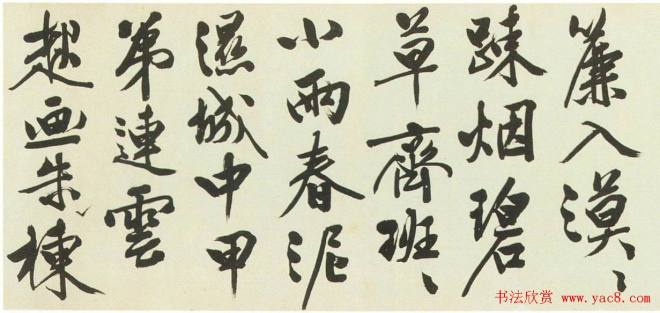 簾入漠〻
踈烟碧
草齊班〻
小雨春泥
濕城中甲
第連雲
起画朱棟
书法欣赏 www.yac8.com